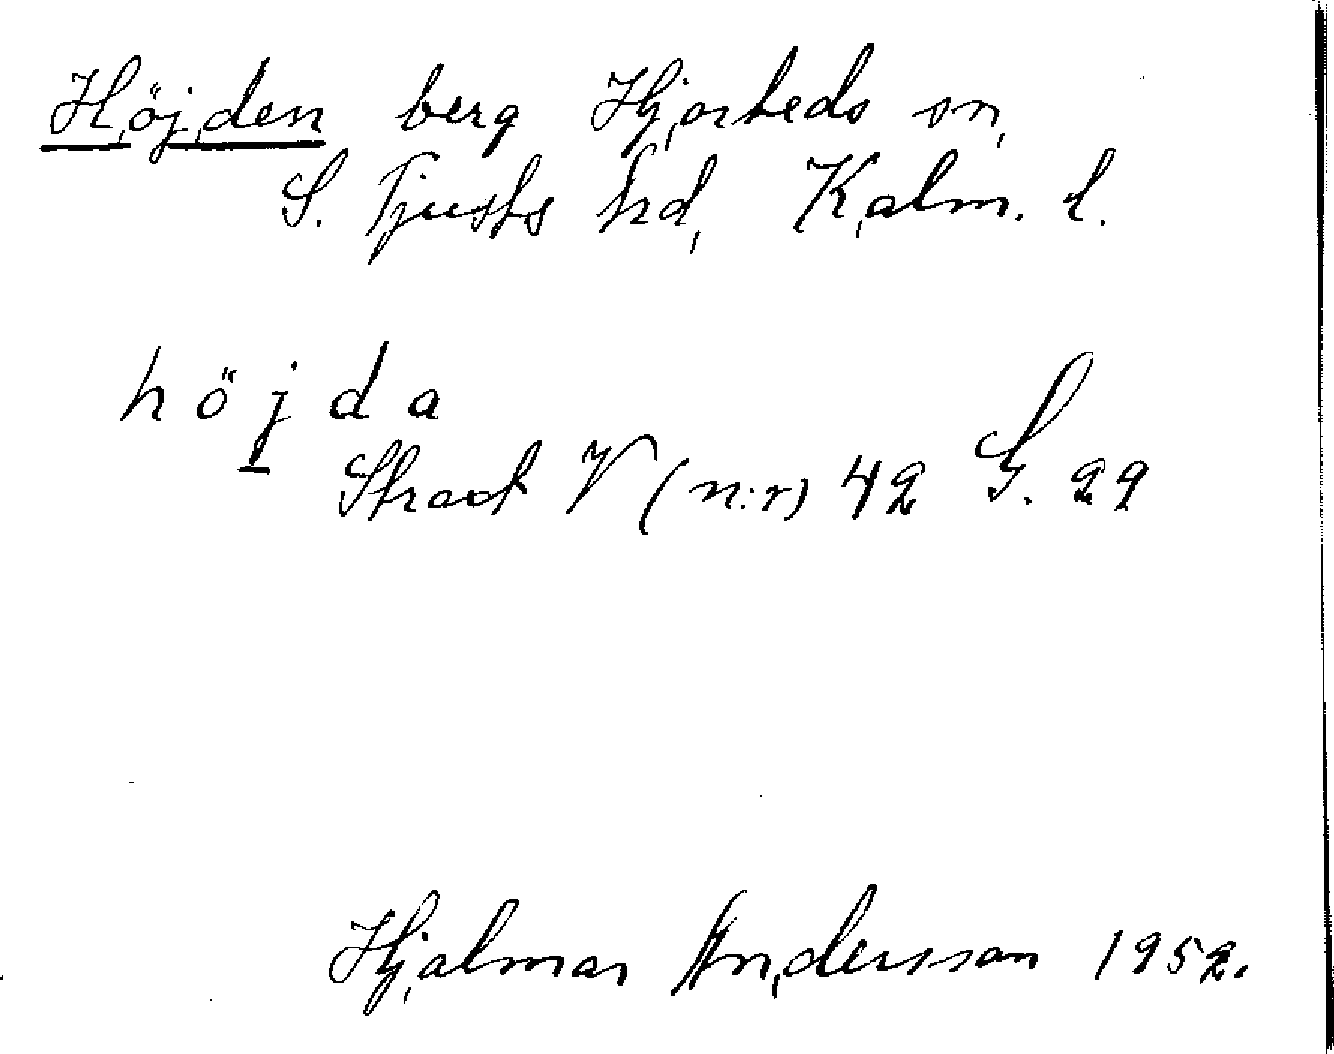 Höjden berg Hjorteds sn,
S. Tjusts hd, Kalm. l.
höjda
V (n:r) 42 G. 29
Hjalmar Andersson 1952.